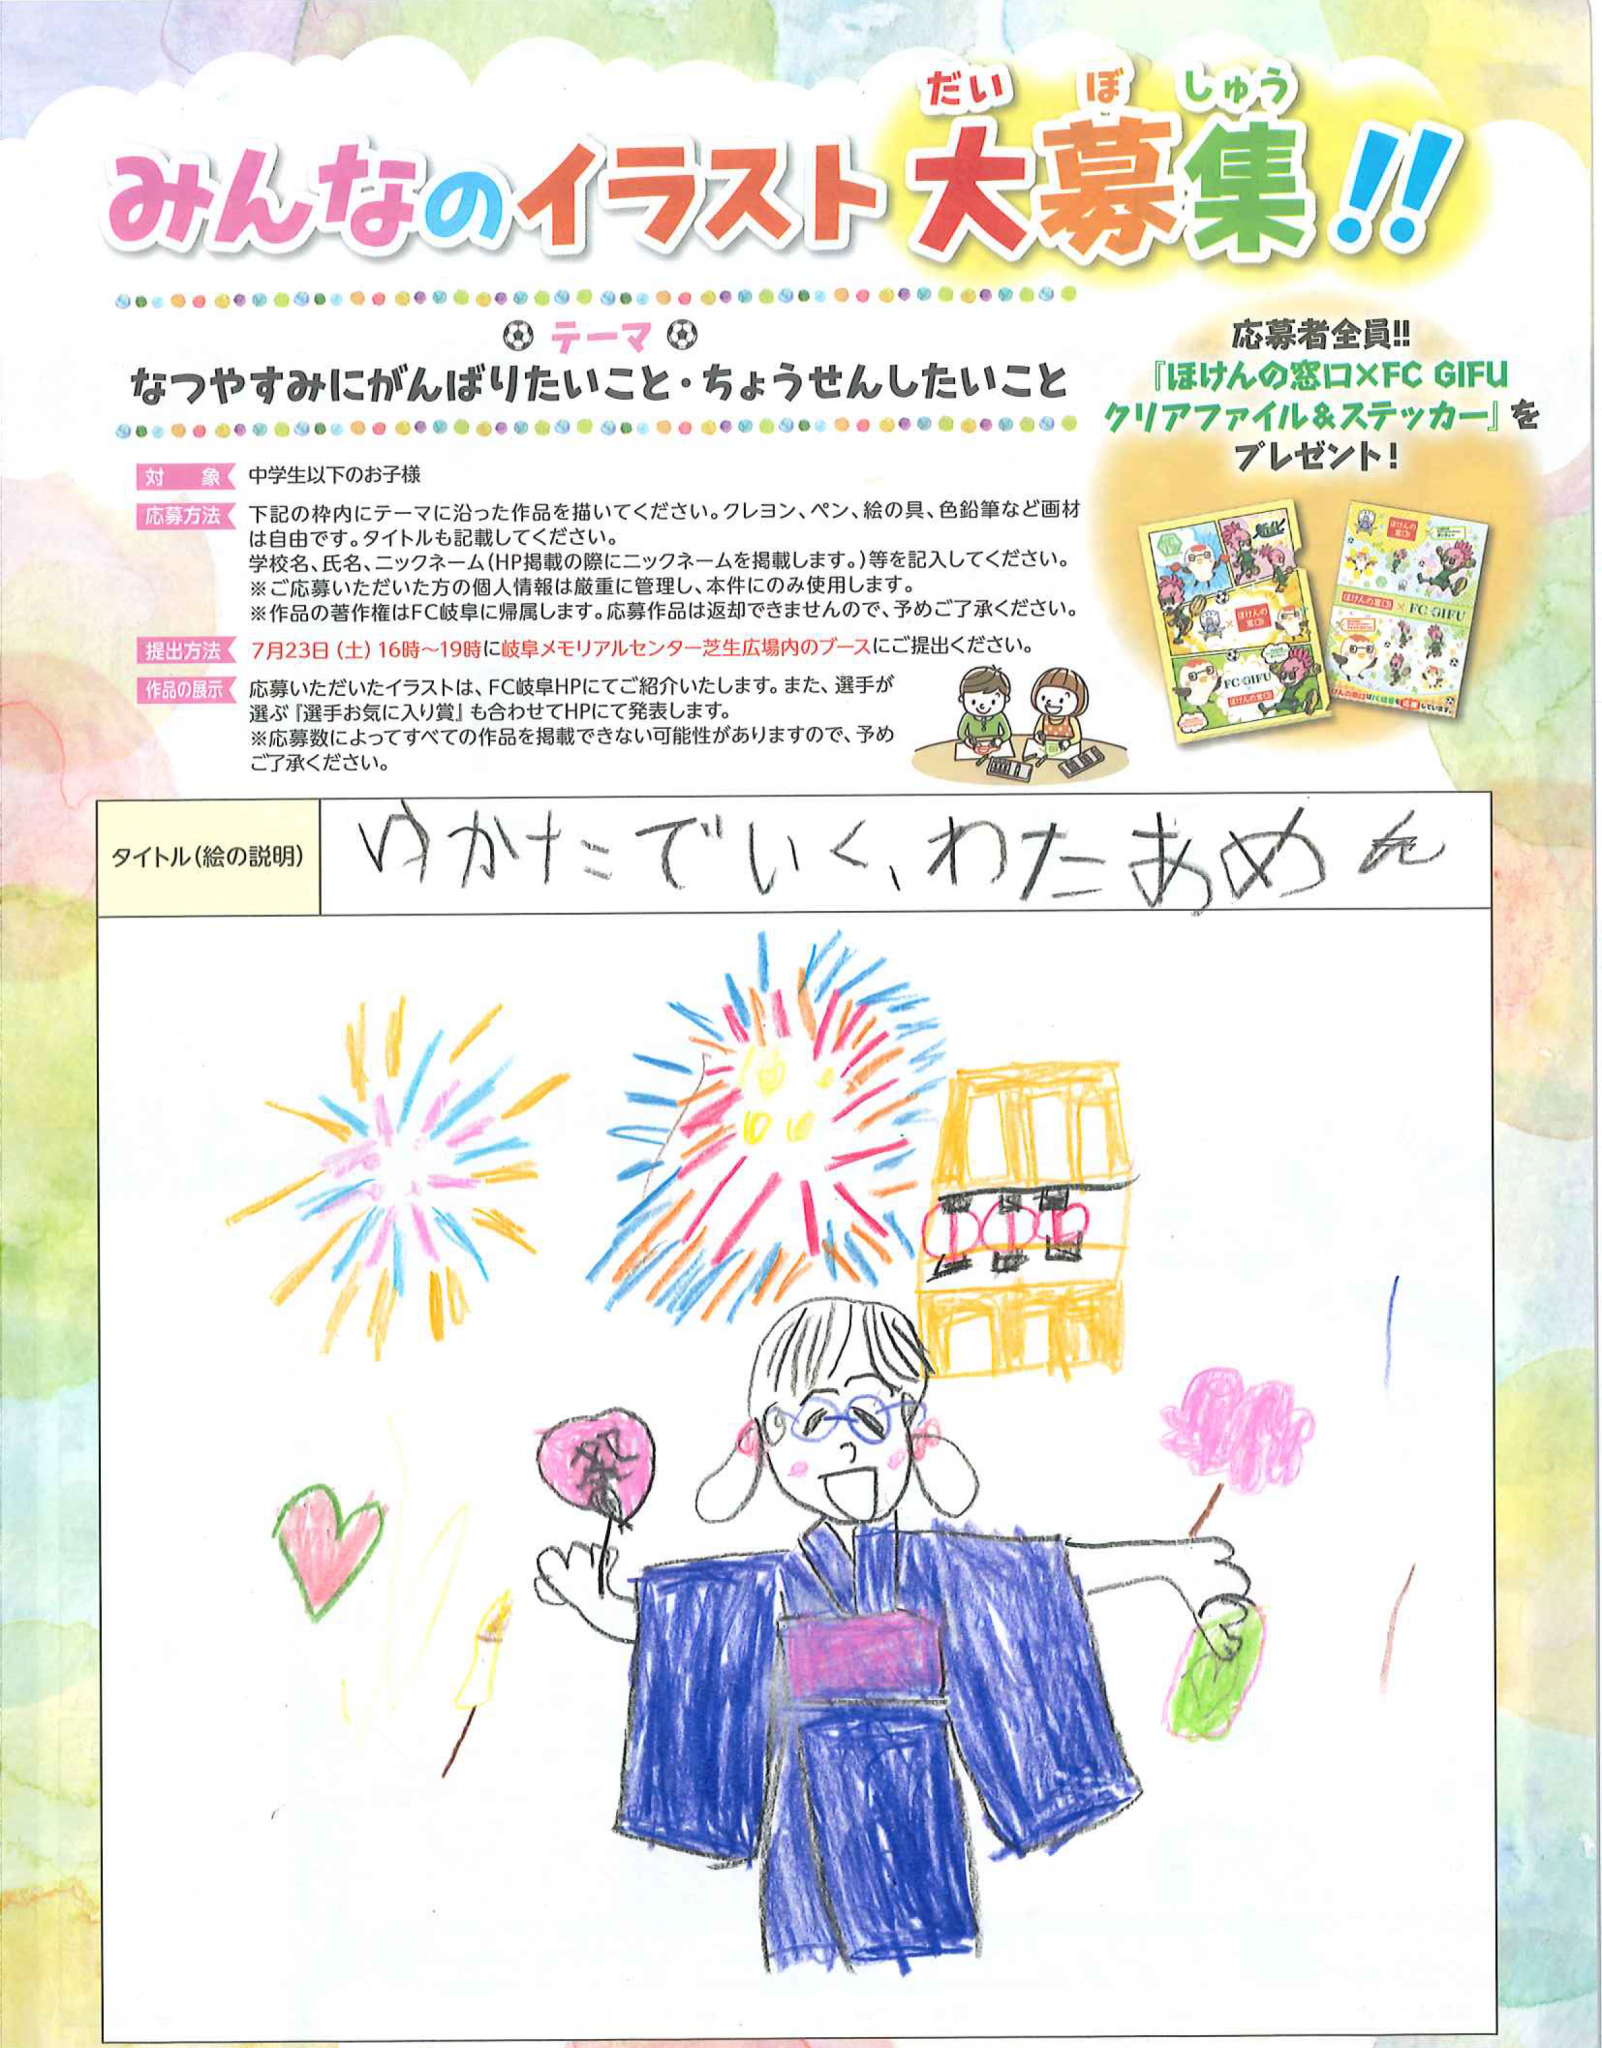 だい ぼ しゅう
みんなのイラスト大募集!!
テーマ
なつやすみにがんばりたいこと・ちょうせんしたいこと
応募者全員!!
『ほけんの窓口×FC GIFU
クリアファイル&ステッカー』を
プレゼント!
対象 中学生以下のお子様
応募方法 下記の枠内にテーマに沿った作品を描いてください。クレヨン、ペン、絵の具、色鉛筆など画材
は自由です。タイトルも記載してください。
学校名、氏名、ニックネーム(HP掲載の際にニックネームを掲載します。)等を記入してください。
※ご応募いただいた方の個人情報は厳重に管理し、本件にのみ使用します。
※作品の著作権はFC岐阜に帰属します。応募作品は返却できませんので、予めご了承ください。
提出方法 7月23日(土)16時〜19時に岐阜メモリアルセンター芝生広場内のブースにご提出ください。
作品の展示 応募いただいたイラストは、FC岐阜HPにてご紹介いたします。また、選手が
選ぶ『選手お気に入り賞』も合わせてHPにて発表します。
※応募数によってすべての作品を掲載できない可能性がありますので、予め
ご了承ください。
ほけんの窓口
FC GIFU
ほけんの窓口
ほけんの窓口
ほけんの窓口 × FC GIFU
タイトル(絵の説明) ゆかたでいく、わたあめ
祭